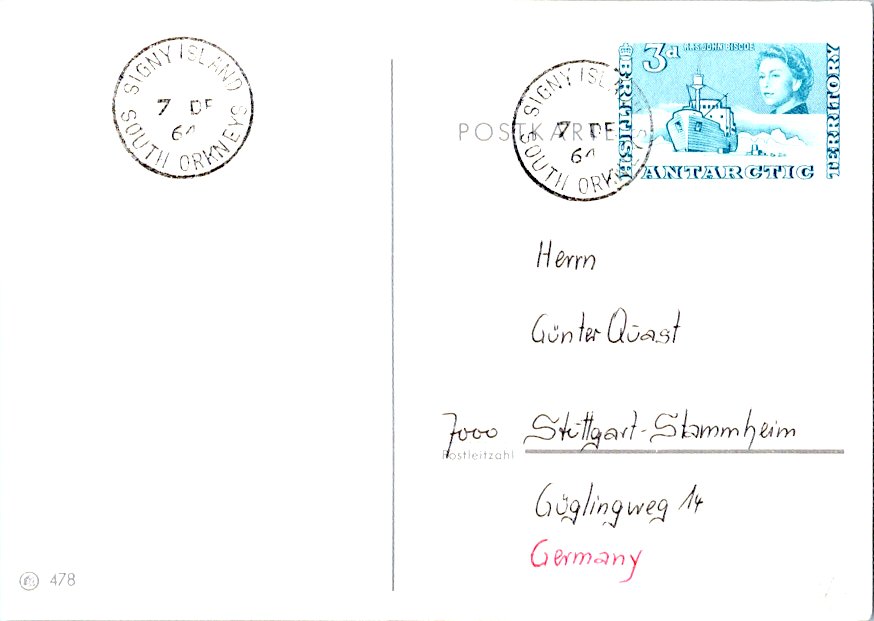 SIGNY ISLAND
7 DE
64
SOUTH ORKNEYS
3d R.R.S. JOHN BISCOE
BRITISH
ANTARCTIC
TERRITORY
POSTKARTE
SIGNY ISLAND
7 DE
64
SOUTH ORKNEYS
Herrn
Günter Quast
7000 Stuttgart-Stammheim
Postleitzahl
Güglingweg 14
Germany
478